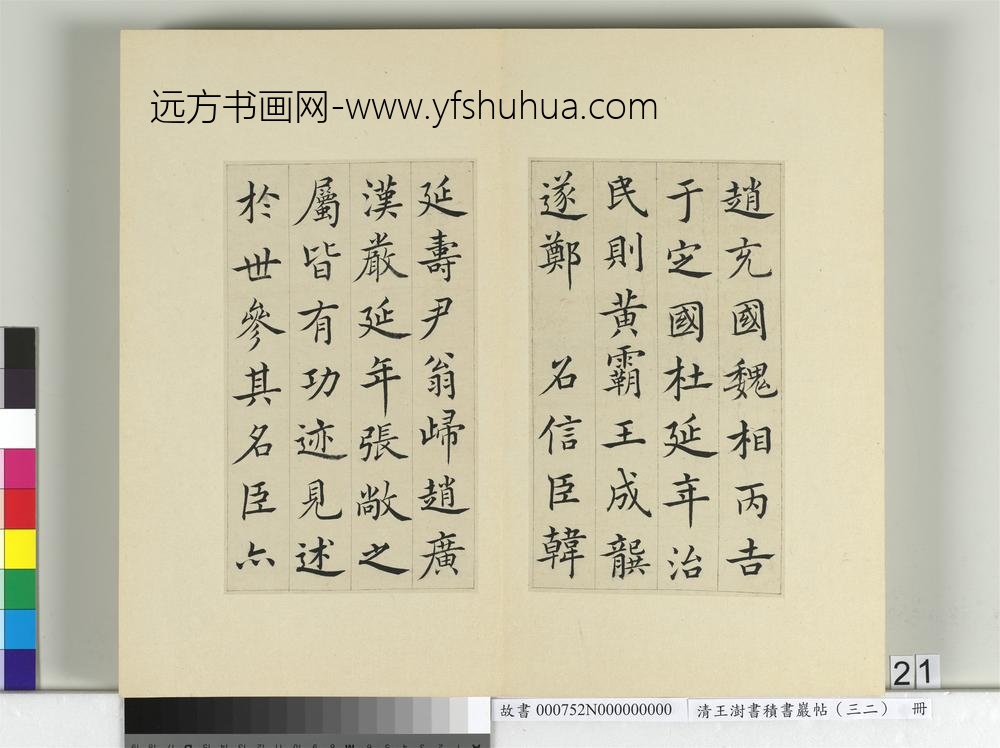 远方书画网-www.yfshuhua.com
趙充國魏相丙吉
于定國杜延年治
民則黃霸王成龔
遂鄭 召信臣韓
延壽尹翁歸趙廣
漢嚴延年張敞之
屬皆有功迹見述
於世參其名臣亦
21
故書 000752N000000000
清王澍書積書巖帖(三二) 冊